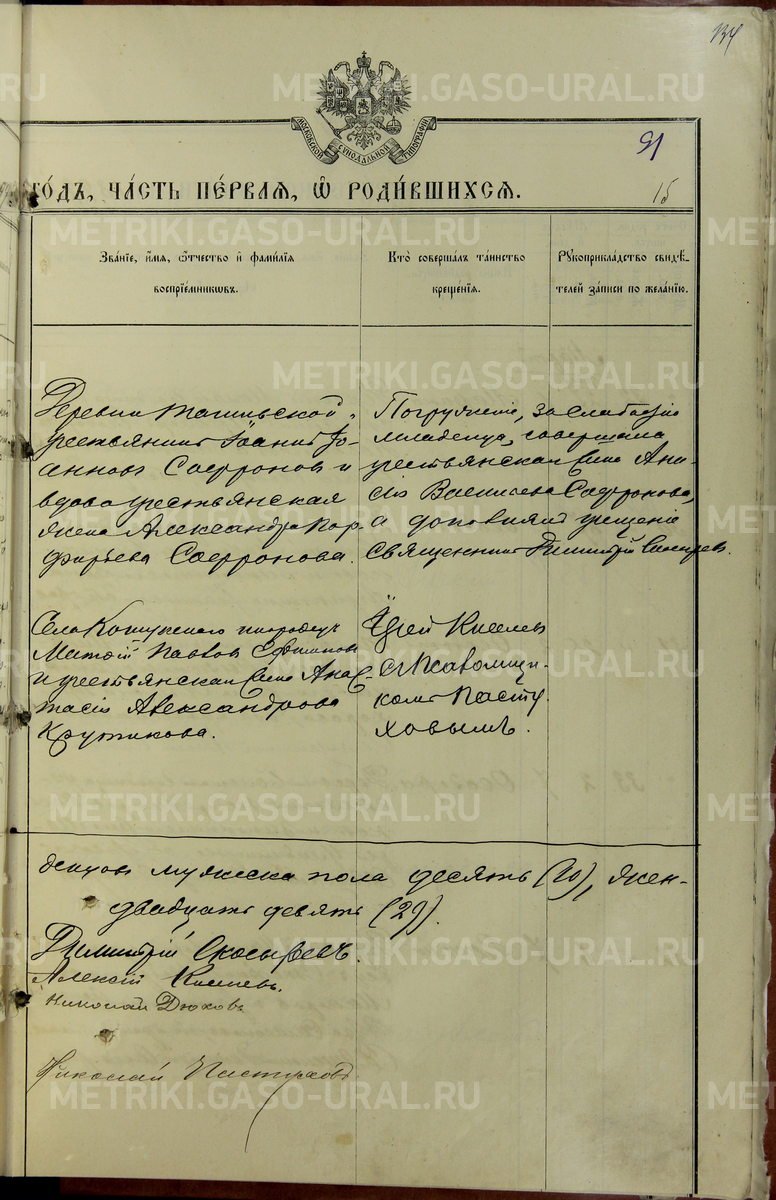 134
МОСКОВСКОЙ СѴНОДАЛЬНОЙ ТИПОГРАФІИ
91
гóдъ, чáсть пéрваѧ, ѡ҆ роди́вшихсѧ.
15
Звáнїе, и҆́мѧ, ѻ҆́тчество и҆ фами́лїѧ
воспрїе́мникѡвъ.
Ктò совершáлъ тáинство
крещéнїѧ.
Рꙋкоприклáдство свидѣ́-
телей зáписи по желáнїю.
Деревни Тагильской
крестьянинъ Іоаннъ Іо-
анновъ Сафроновъ и
вдова крестьянская
жена Александра Пор-
фирьева Сафронова.
Погруженіе, за слабостію
младенца, совершала
крестьянская жена Ана-
сія Васильева Сафронова,
а дополнялъ крещеніе
Священникъ Димитрій Скосыревъ.
Села Кошукскаго инородецъ
Матѳій Павловъ
и крестьянская Анас-
тасія Александрова
Крутикова.
Іерей Киселевъ
съ Псаломщи-
комъ Пасту
ховымъ.
мужеска пола десять (10), жен-
двадцать девять (29).
Димитрій Скосыревъ.
Алексій Киселевъ.
Николай Дюковъ
Николай Пастуховъ
METRIKI.GASO-URAL.RU